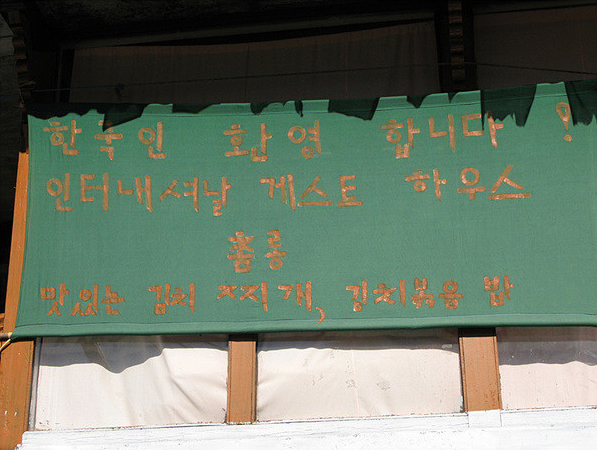 한국인 환영 합니다 !
인터내셔날 게스트 하우스
촘롱
맛있는 김치 찌개, 김치볶음 밥